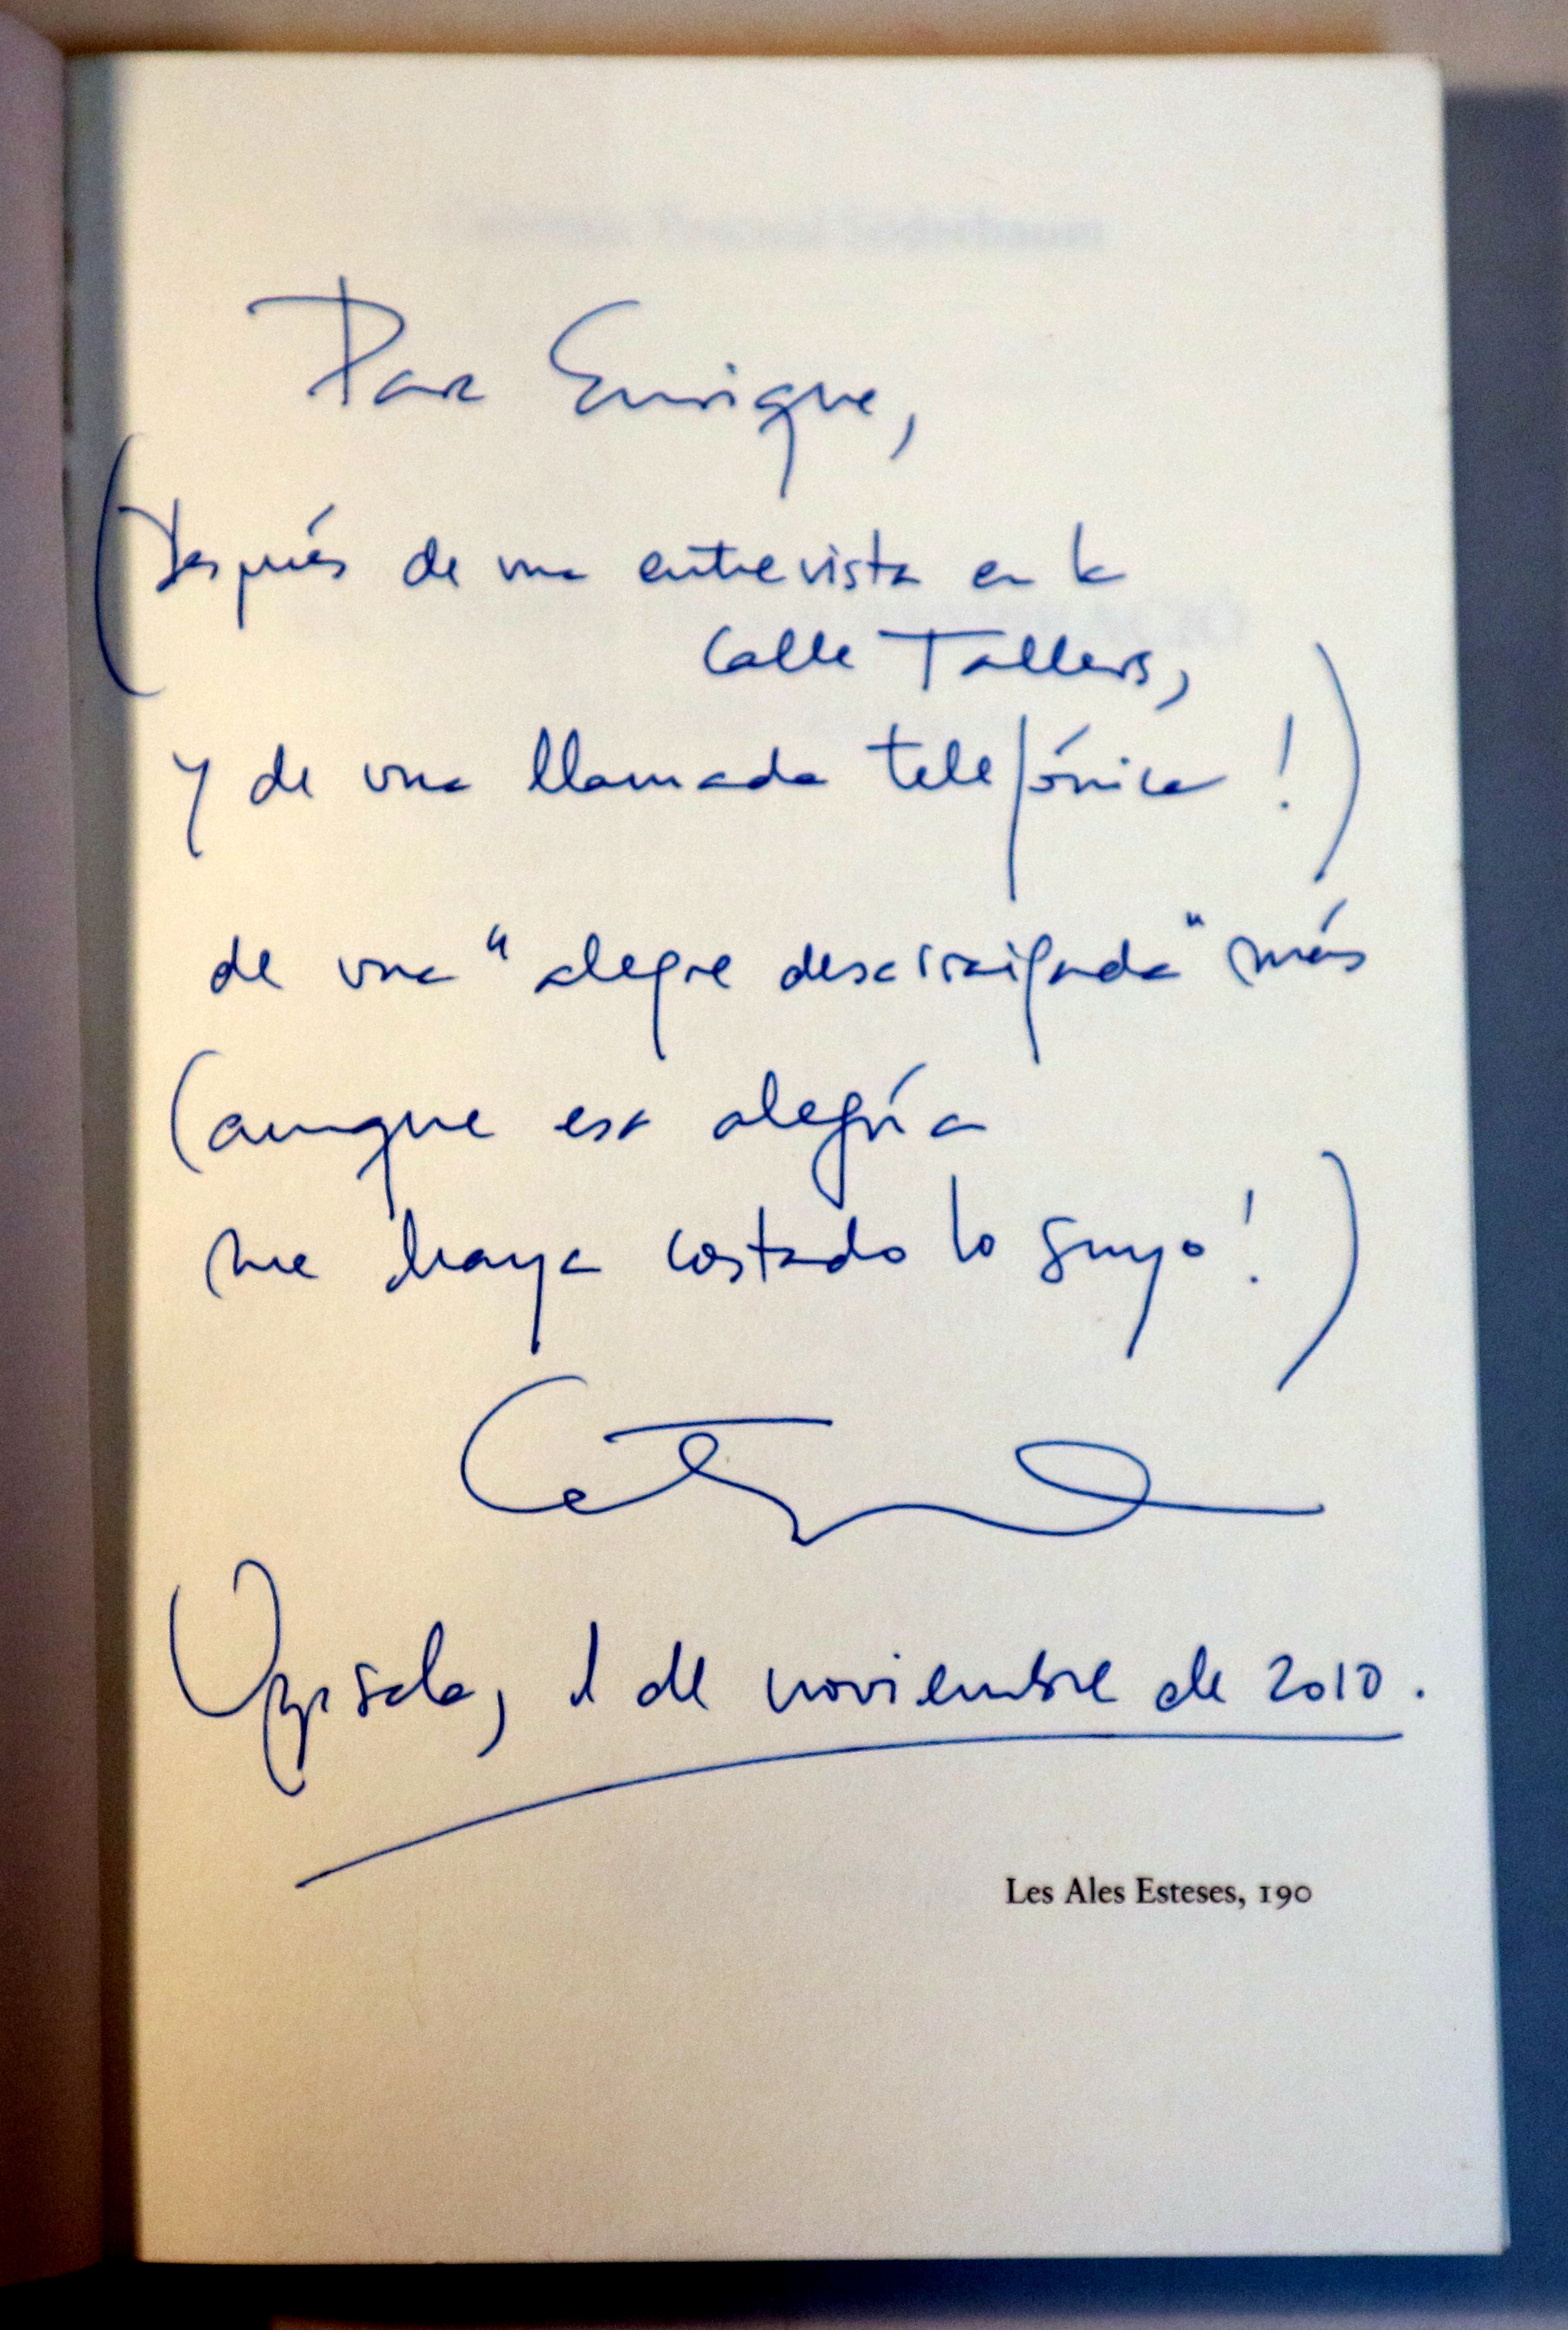 Para Enrique,
(Después de una entrevista en la
Calle Tallers,
y de una llamada telefónica!)
de una "alegre desarraigada" más
(aunque esa alegría
me haya costado lo suyo!)
Uppsala, 1 de noviembre de 2010.
Les Ales Esteses, 190